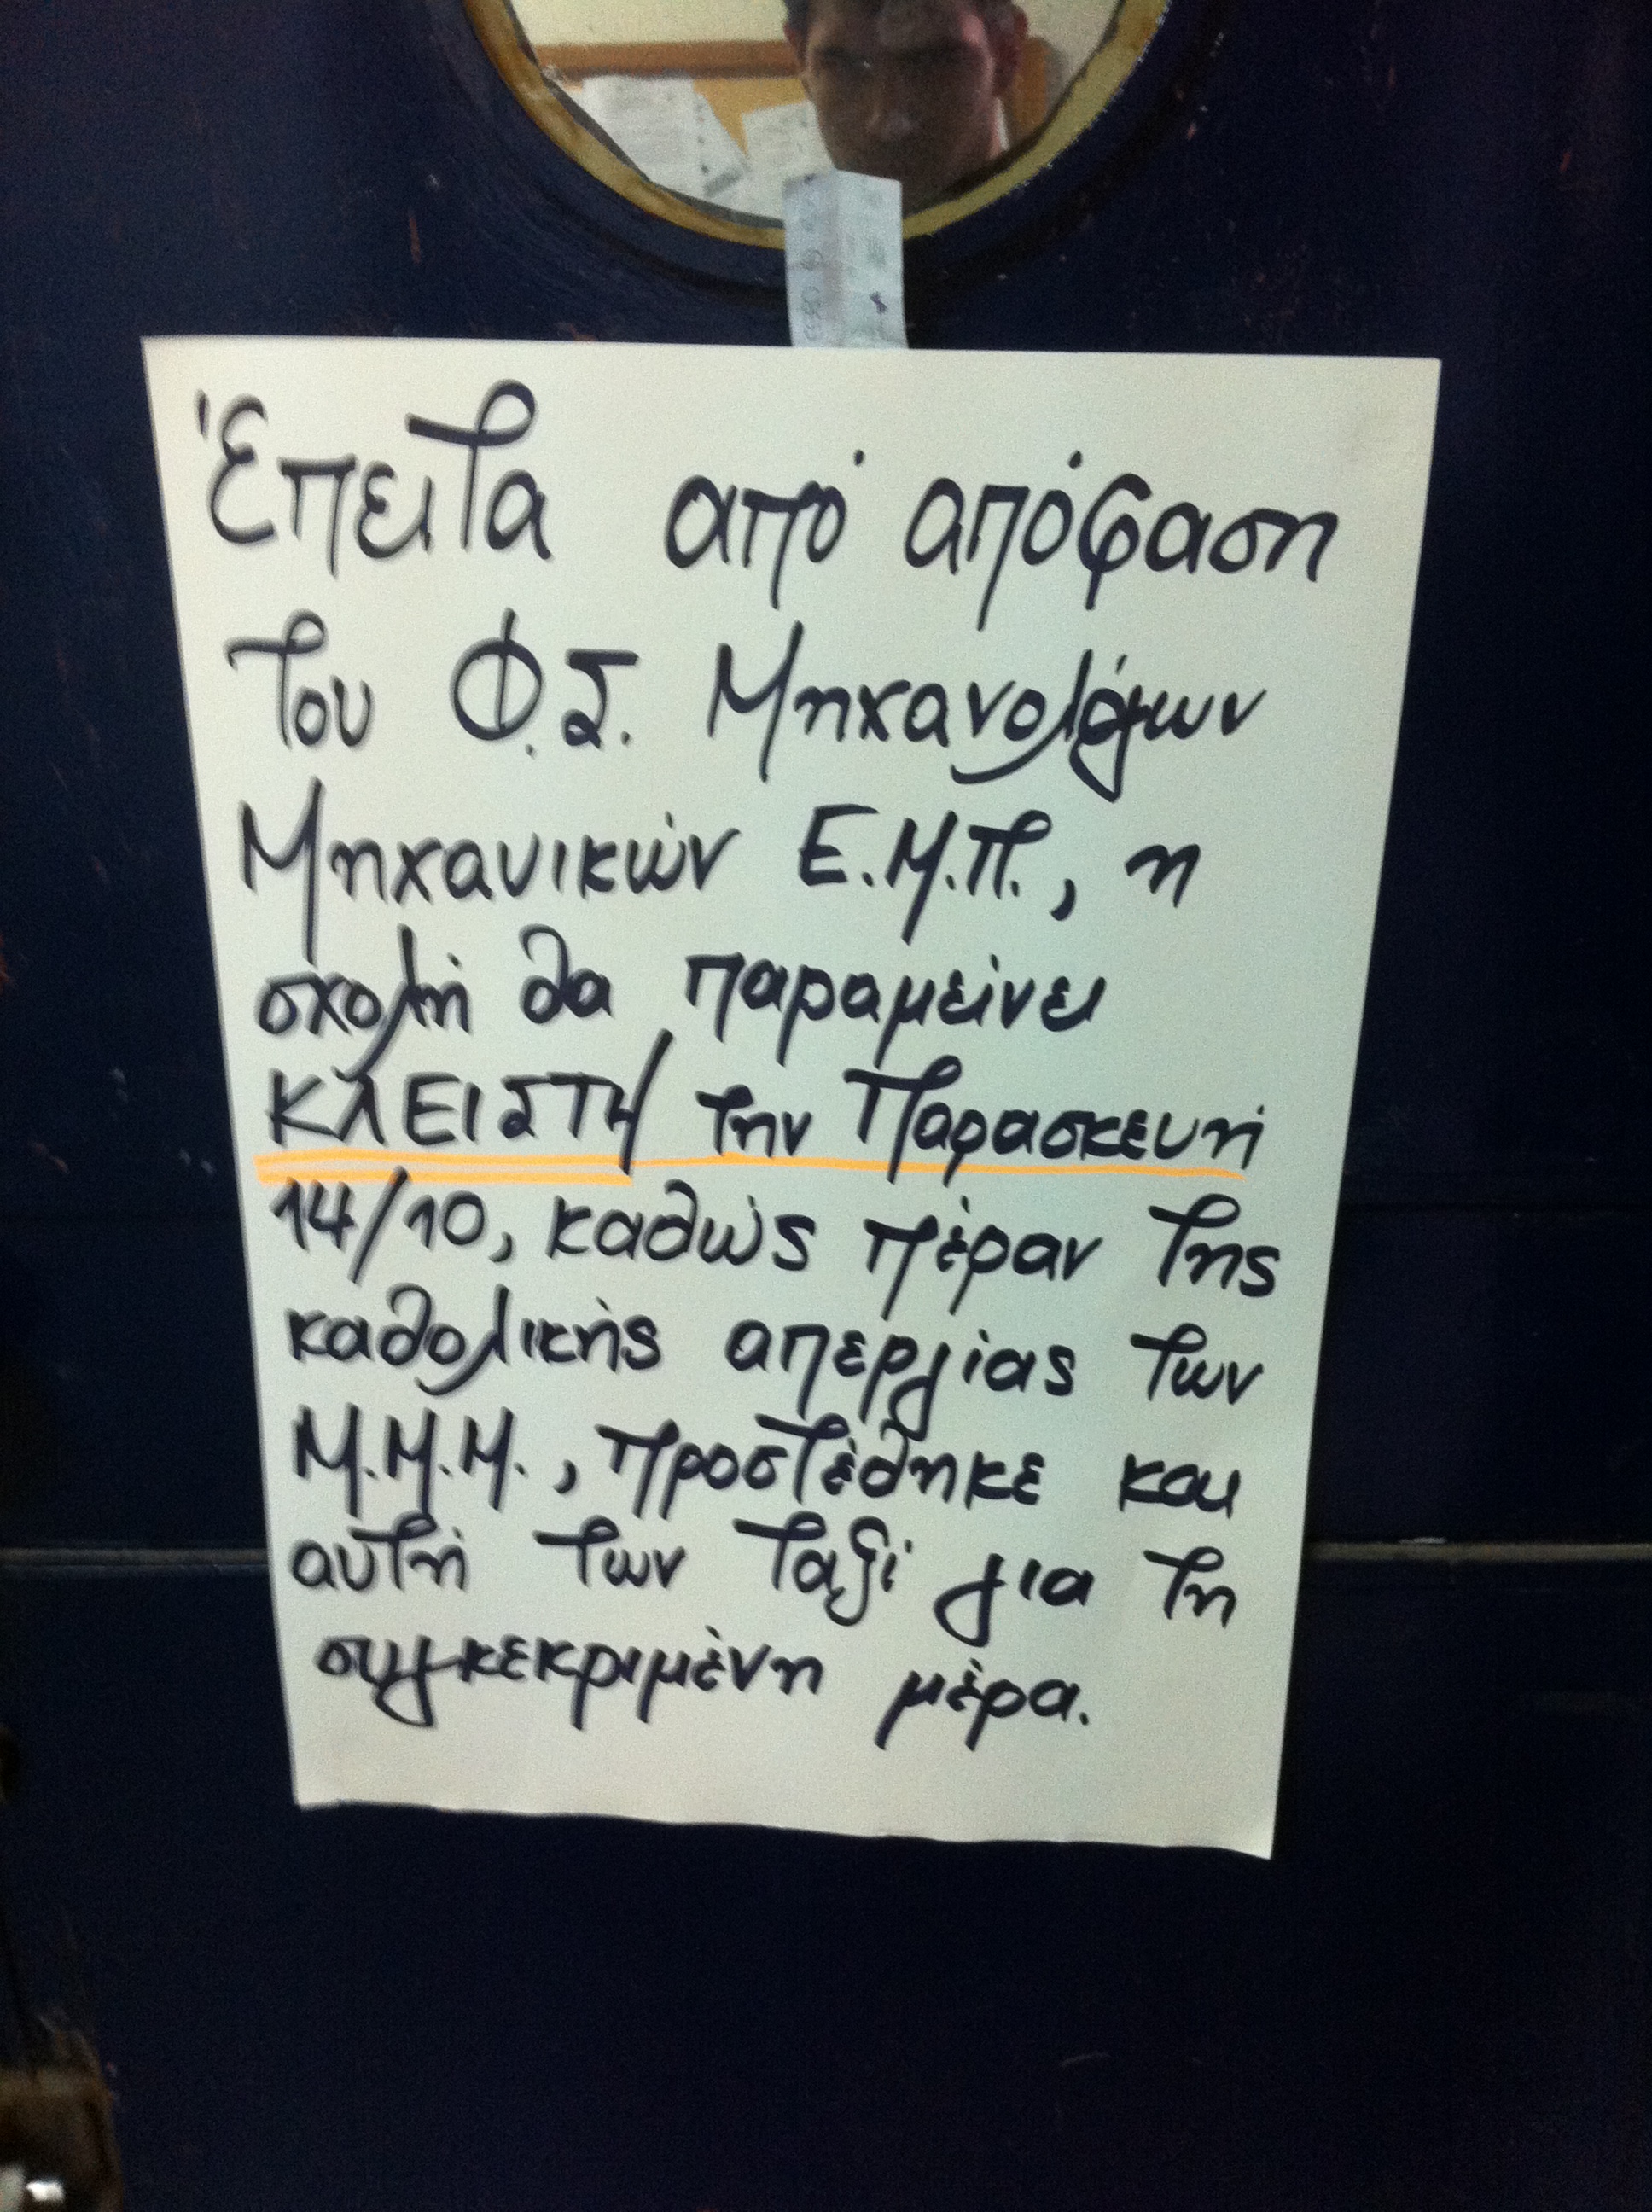 Έπειτα από απόφαση
του Φ.Σ. Μηχανολόγων
Μηχανικών Ε.Μ.Π., η
σχολή θα παραμείνει
ΚΛΕΙΣΤΗ την Παρασκευή
14/10, καθώς πέραν της
καθολικής απεργίας των
Μ.Μ.Μ., προστέθηκε και
αυτή των ταξί για τη
συγκεκριμένη μέρα.